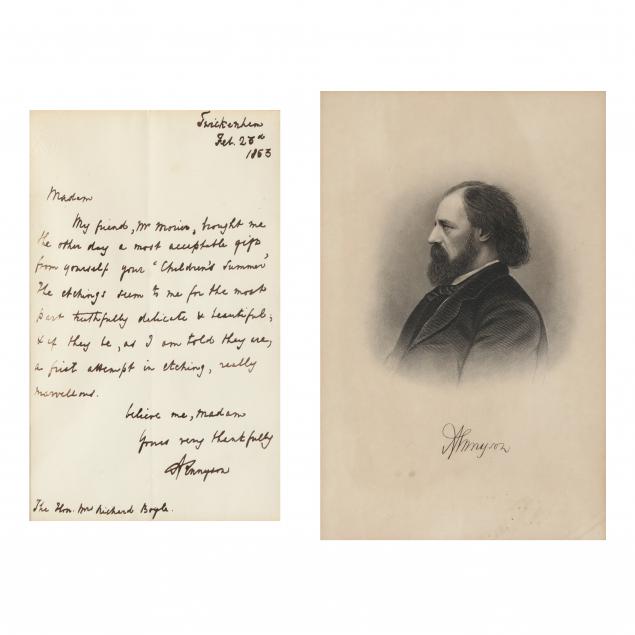 Twickenham
Feb. 23d
1853
Madam
My friend, Mr Morier, brought me
the other day a most acceptable gift,
from yourself your "Children's Summer"
The etchings seem to me for the most
part truthfully delicate & beautiful;
& if they be, as I am told they are,
a first attempt in etching, really
marvellous.
believe me, Madam
Yours very thankfully
ATennyson
The Hon. Mrs Richard Boyle.
ATennyson